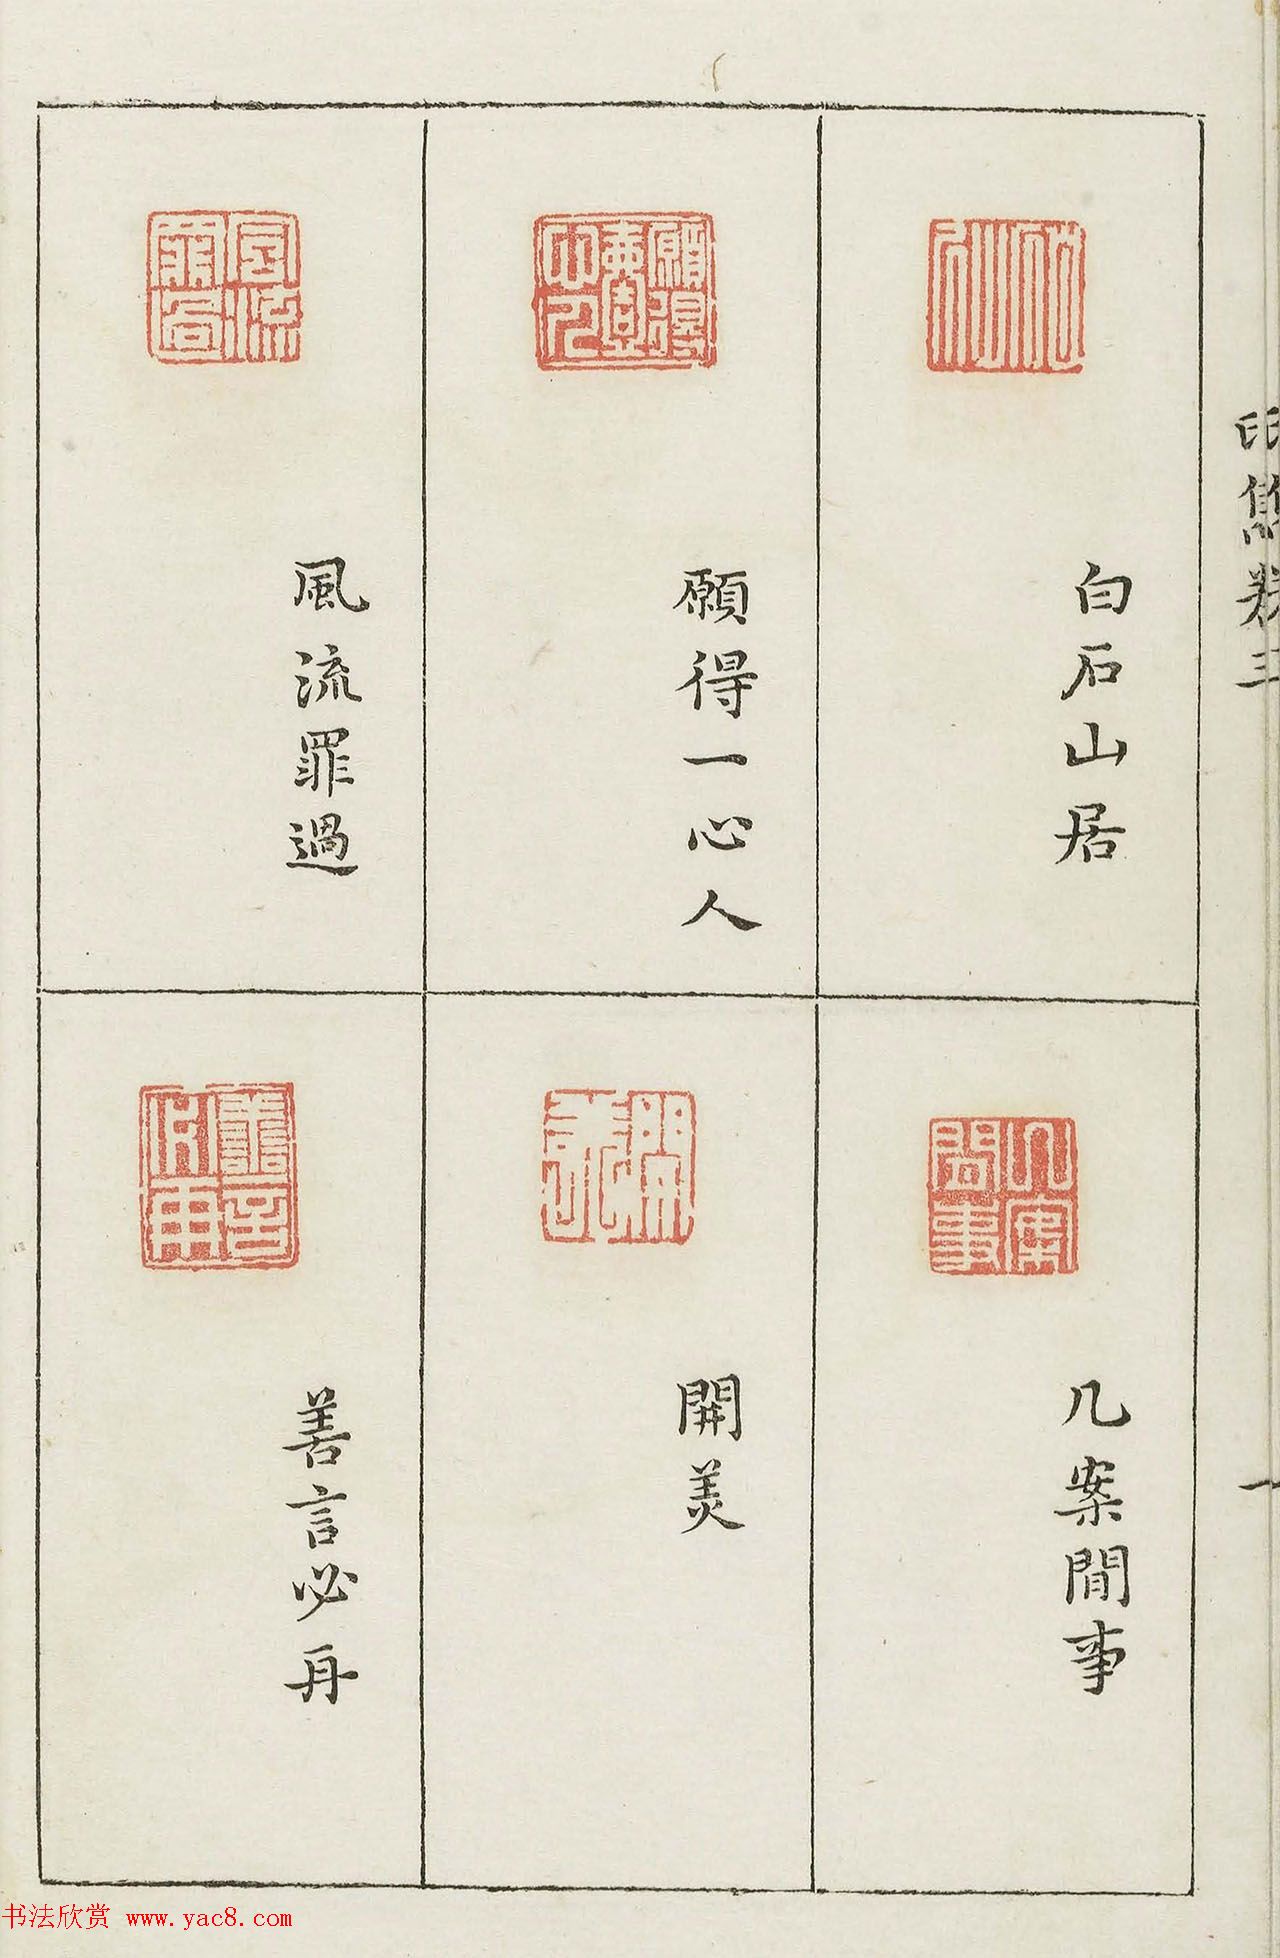 印雋卷三
一
白石山居
願得一心人
風流罪過
几案閒事
開美
善言必再
书法欣赏 www.yac8.com